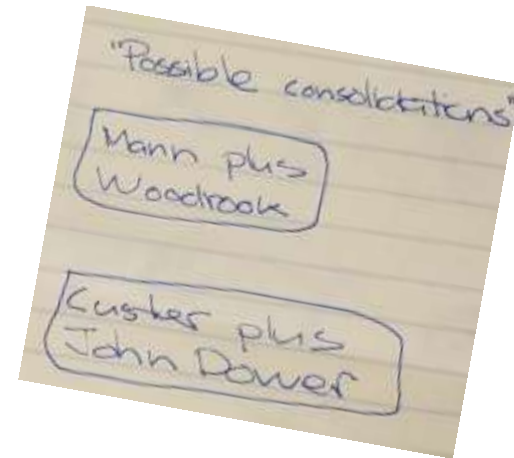 "Possible consolidations"
Mann plus
Woodrook
Custer plus
John Dower